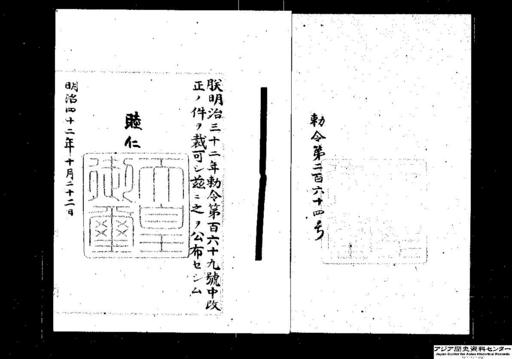 勅令第二百六十四号
朕明治三十二年勅令第百六十九號中改
正ノ件ヲ裁可シ茲ニ之ヲ公布セシム
睦仁
天皇
御璽
明治四十二年十月二十二日
アジア歴史資料センター
Japan Center for Asian Historical Records